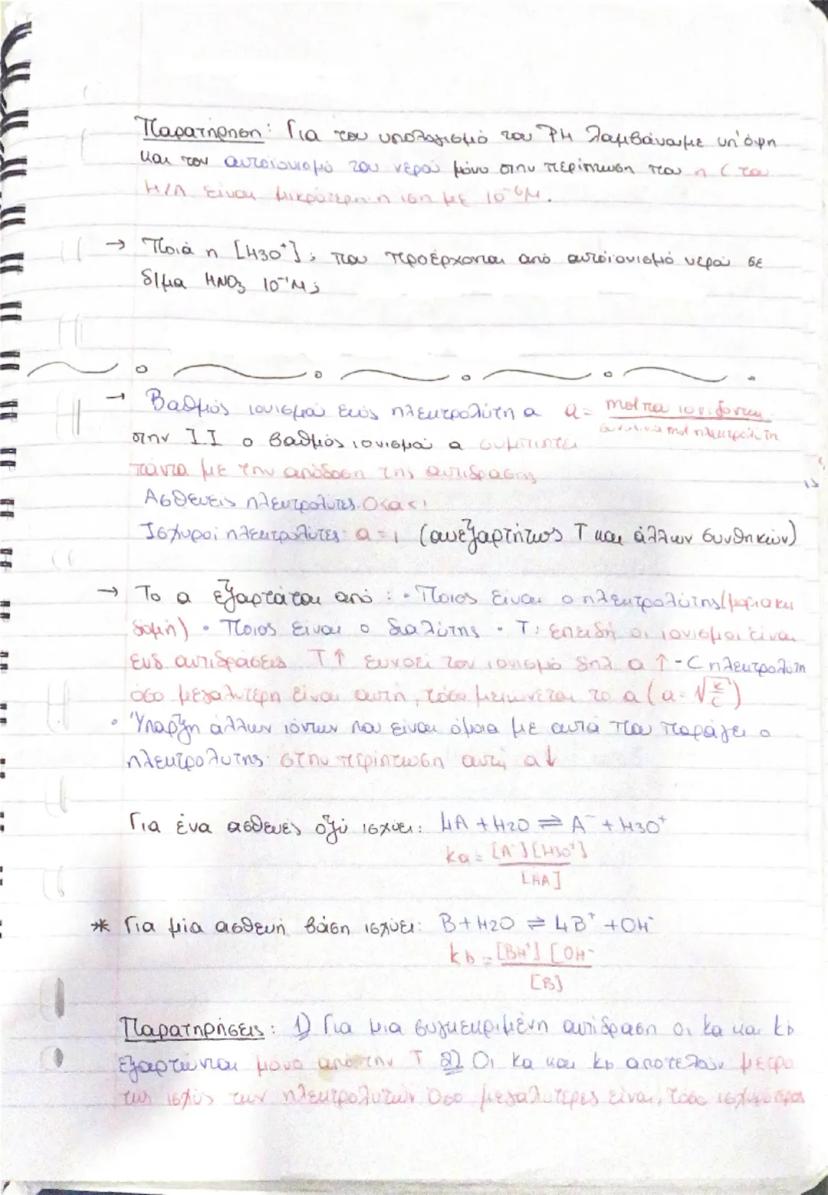 Παρατήρηση: Για τον υπολογισμό του PH λαμβάνουμε υπ'όψη
και τον αυτοϊονισμό του νερού μόνο στην περίπτωση που η C του
Η/Λ είναι μικρότερη η ιση με 10⁻⁶Μ.
→ Ποιά η [H3O⁺]; που προέρχονται από αυτοϊονισμό νερού σε
δ/μα HNO₃ 10⁻¹Μ;
→ Βαθμός ιονισμού ενός ηλεκτρολύτη α α = mol που ιονίζονται / συνολικά mol ηλεκτρολύτη
στην Ι.Ι ο βαθμός ιονισμού α συμπίπτει
πάντα με την απόδοση της αντίδρασης
Ασθενεις ηλεκτρολύτες 0<α<1
Ισχυροί ηλεκτρολύτες: α=1 (ανεξαρτήτως Τ και άλλων συνθηκών)
→ Το α εξαρτάται από: • Ποιος είναι ο ηλεκτρολύτης (μοριακη
δομή) • Ποιος ειναι ο διαλύτης • Τ: επειδή οι ιονισμοι είναι
ενδ αντιδράσεις Τ↑ ευνοεί τον ιονισμό δηλ α↑ - C ηλεκτρολύτη
όσο μεγαλυτερη είναι αυτή, τόσο μειώνεται το α (α=√K/C)
• Ύπαρξη άλλων ιόντων που είναι όμοια με αυτά που παράγει ο
ηλεκτρολυτης στην περίπτωση αυτή α↓
Για ένα ασθενές οξύ ισχύει: HA + H2O ⇌ A⁻ + H3O⁺
ka = [A⁻][H3O⁺] / [HA]
* Για μία ασθενή βάση ισχύει: B + H2O ⇌ HB⁺ + OH⁻
kb = [BH⁺][OH⁻ / [B]
Παρατηρήσεις: 1) Για μια συγκεκριμένη αντίδραση οι ka και kb
εξαρτώνται μόνο από την Τ 2) Οι ka και kb αποτελούν μετρο
της ισχύς των ηλεκτρολυτών Όσο μεγαλυτερες είναι, τόσο ισχυρότερος